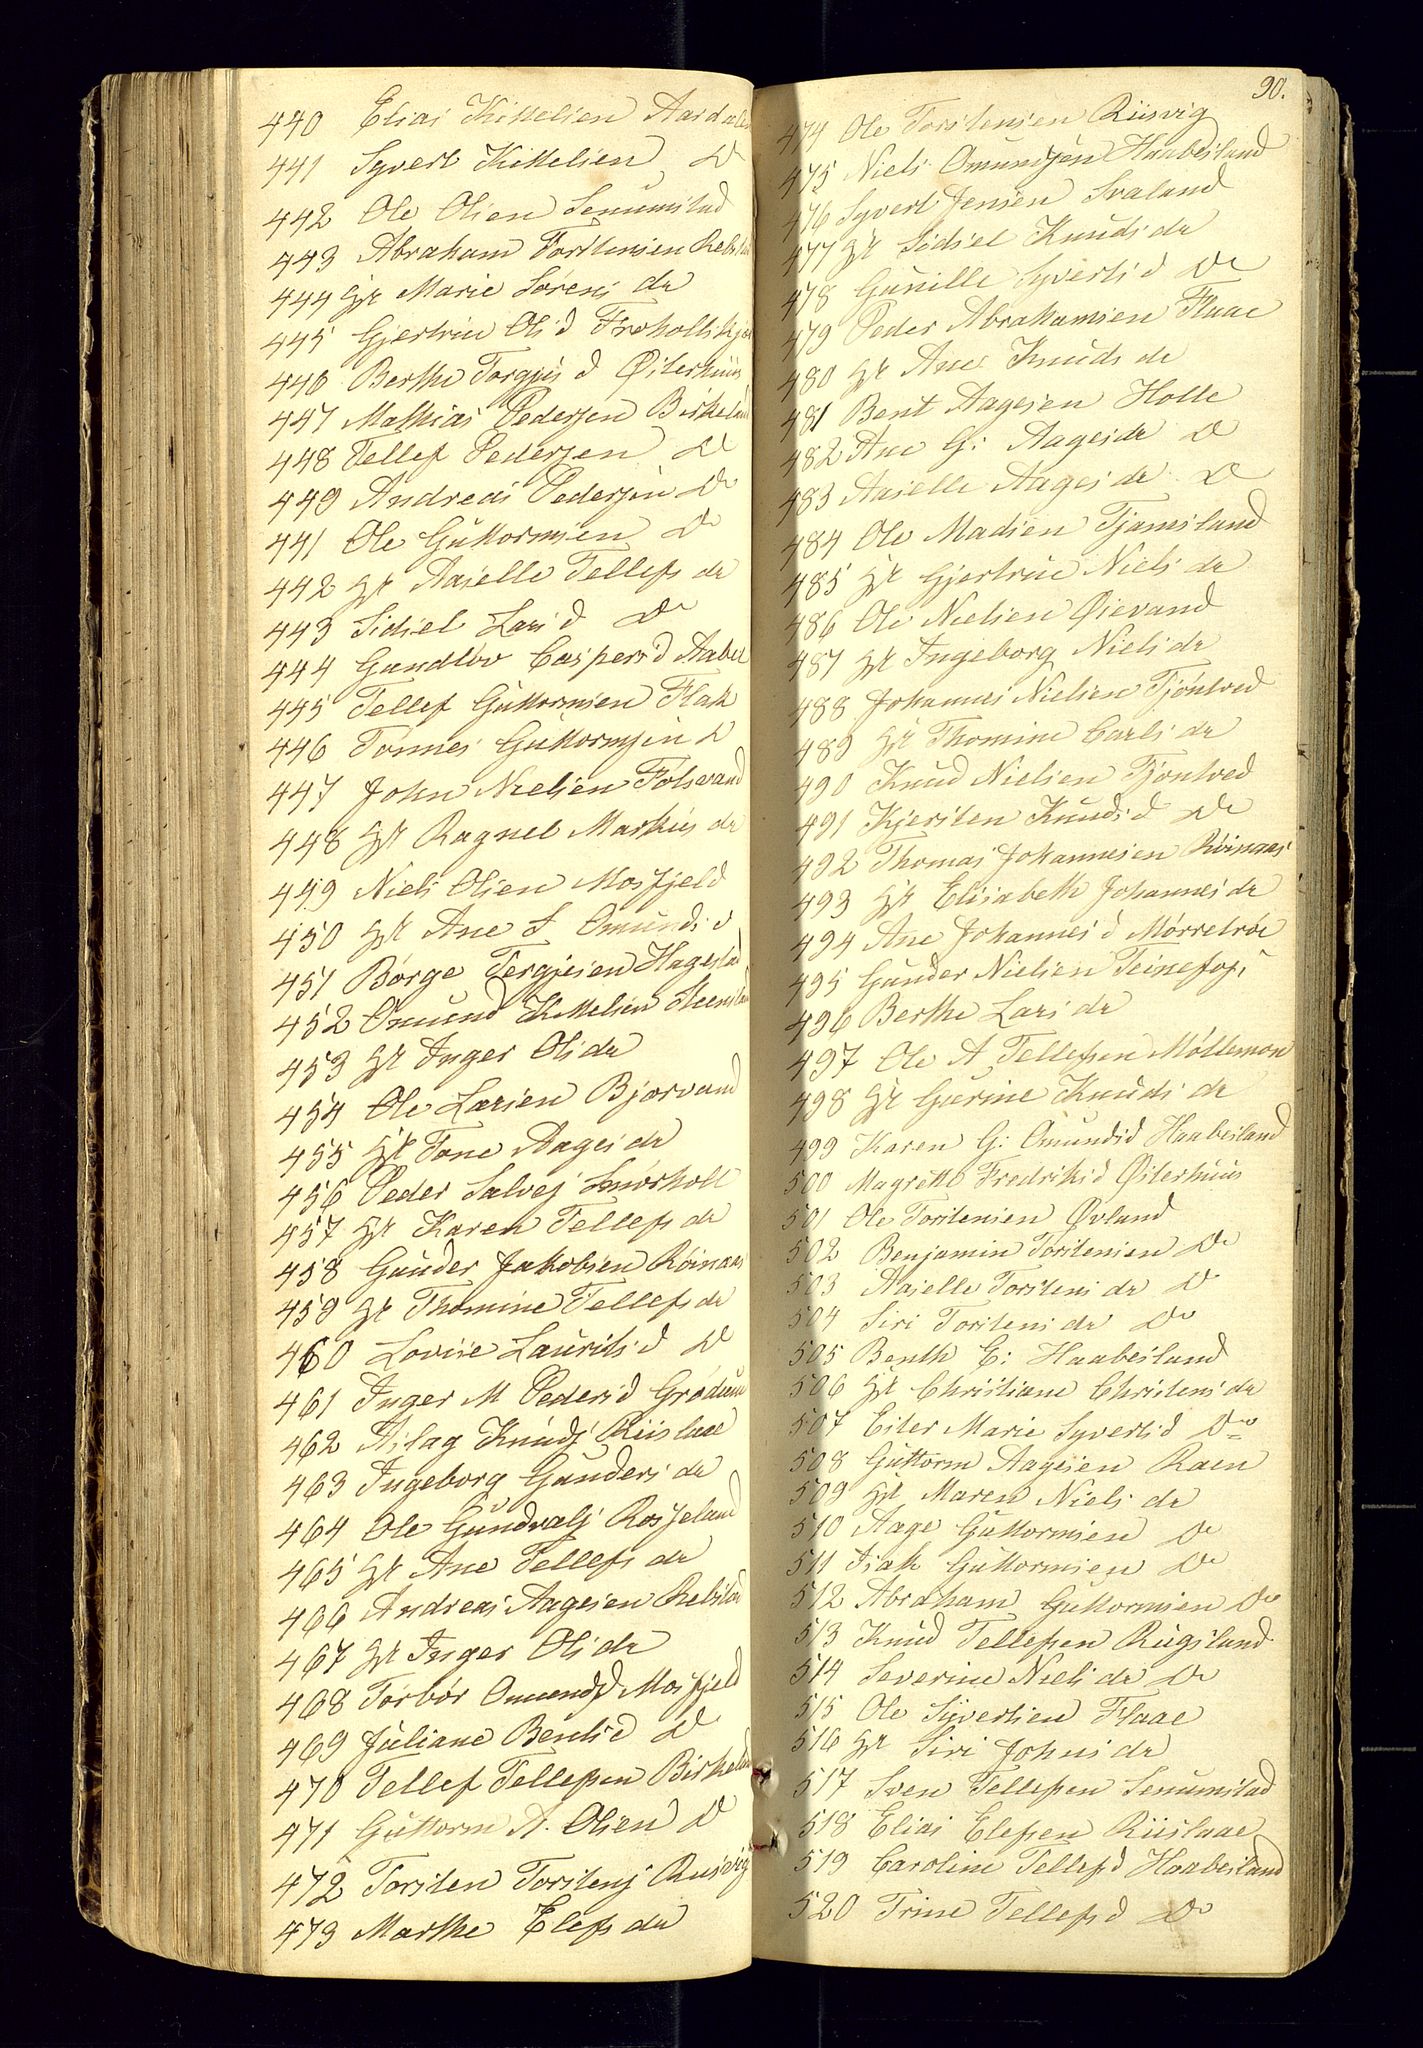 440 Elias Kittelsen Aardalen
441 Syvert Kittelsen do
442 Ole Olsen Senumstad
443 Abraham Torstensen Rebstad
444 Hst Marie Sørens dr
445 Gjertrue Ols d Froholtskjær
446 Berthe Torgjus d Østerhuus
447 Mathias Pedersen Birkeland
448 Tellef Pedersen do
449 Andreas Pedersen do
441 Ole Guttormsen do
442 Hst Aaselle Tellefs dr
443 Sidsel Lars d do
444 Gundlov Caspersd Aabel
445 Tellef Guttormsen Flak
446 Tønnes Guttormsen do
447 John Nielsen Følsvand
448 Hst Ragnel Markus dr
449 Niels Olsen Mosfjeld
450 Hst Ane S Omunds d
451 Børge Tergjesen Hagestad
452 Omund Kittelsen Steenstad
453 Hst Inger Olsdr
454 Ole Larsen Bjorvand
455 Hst Tone Aagesdr
456 Peder Salvesj Smørholt
457 Hst Karen Tellefs dr
458 Gunder Jakobsen Røinaas
459 Hst Thomine Tellefs dr
460 Lovise Laurits d do
461 Inger M Peders d Grødum
462 Aslag Knudsj Riislaae
463 Ingeborg Gunders dr
464 Ole Gundvalsj Rosseland
465 Hst Ane Tellefs dr
466 Andreas Aagesen Rebstad
467 Hst Inger Olsdr
468 Torbør Omundsd Mosfjeld
469 Juliane Bentsd do
470 Tellef Tellefsen Birkeland
471 Guttorm A. Olsen do
472 Torsten Torstensj Riisvig
473 Marthe Elefs dr
90.
474 Ole Torstensen Riisvig
475 Niels Omundsen Haabesland
476 Syvert Jensen Svaland
477 Hst Sidsel Knudsdr
478 Gunille Syvertsd do
479 Peder Abrahamsen Flaae
480 Hst Ane Knuds dr
481 Bent Aagesen Holte
482 Ane G: Aagesdr do
483 Aaselle Aagesdr do
484 Ole Madsen Tjamsland
485 Hst Gjertrue Niels dr
486 Ole Nielsen Øievand
487 Hst Ingeborg Nielsdr
488 Johannes Nielsen Tjøntved
489 Hst Thomine Carls dr
490 Knud Nielsen Tjøntved
491 Kjersten Knudsd do
492 Thomas Johannesen Røinaas
493 Hst Elisabeth Johannesdr
494 Ane Johannesd Mørretrøe
495 Gunder Nielsen Teinefoss
496 Berthe Lars dr
497 Ole A Tellefsen Møllemoen
498 Hst Gurine Knuds dr
499 Karen G: Omundsd Haabesland
500 Magrethe Fredriksd Østerhuus
501 Ole Torstensen Øvland
502 Benjamin Torstensen do
503 Aaselle Torstens dr do
504 Siri Torstens dr do
505 Benth E: Haabesland
506 Hst Christiane Christensdr
507 Ester Marie Syvertsd do
508 Guttorm Aagesen Raen
509 Hst Maren Niels dr
510 Aage Guttormsen do
511 Isak Guttormsen do
512 Abraham Guttormsen do
513 Knud Tellefsen Rugsland
514 Severine Nielsdr do
515 Ole Syvertsen Flaae
516 Hst Siri Johnsdr
517 Sven Tellefsen Senumstad
518 Elias Elefsen Riislaae
519 Caroline Tellefsd Haabesland
520 Trine Tellefsd do